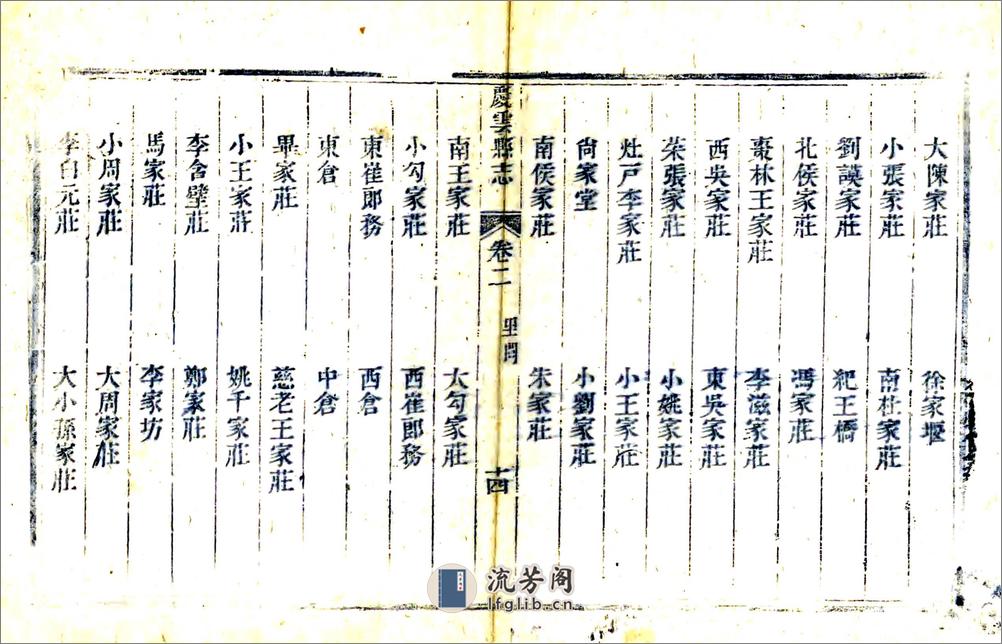 大陳家莊 徐家堰
小張家莊 南杜家莊
劉謨家莊 紀王橋
北侯家莊 馮家莊
棗林王家莊 李滋家莊
西吳家莊 東吳家莊
菜張家莊 小姚家莊
灶戸李家莊 小王家莊
尙家堂 小劉家莊
南侯家莊 朱家莊
慶雲縣志 卷二 里閈 十四
南王家莊 大勾家莊
小勾家莊 西崔郎務
東崔郎務 西倉
東倉 中倉
畢家莊 慈老王家莊
小王家莊 姚千家莊
李含璧莊 鄭家莊
馬家莊 李家坊
小周家莊 大周家莊
李白元莊 大小孫家莊
流芳阁
lfglib.cn